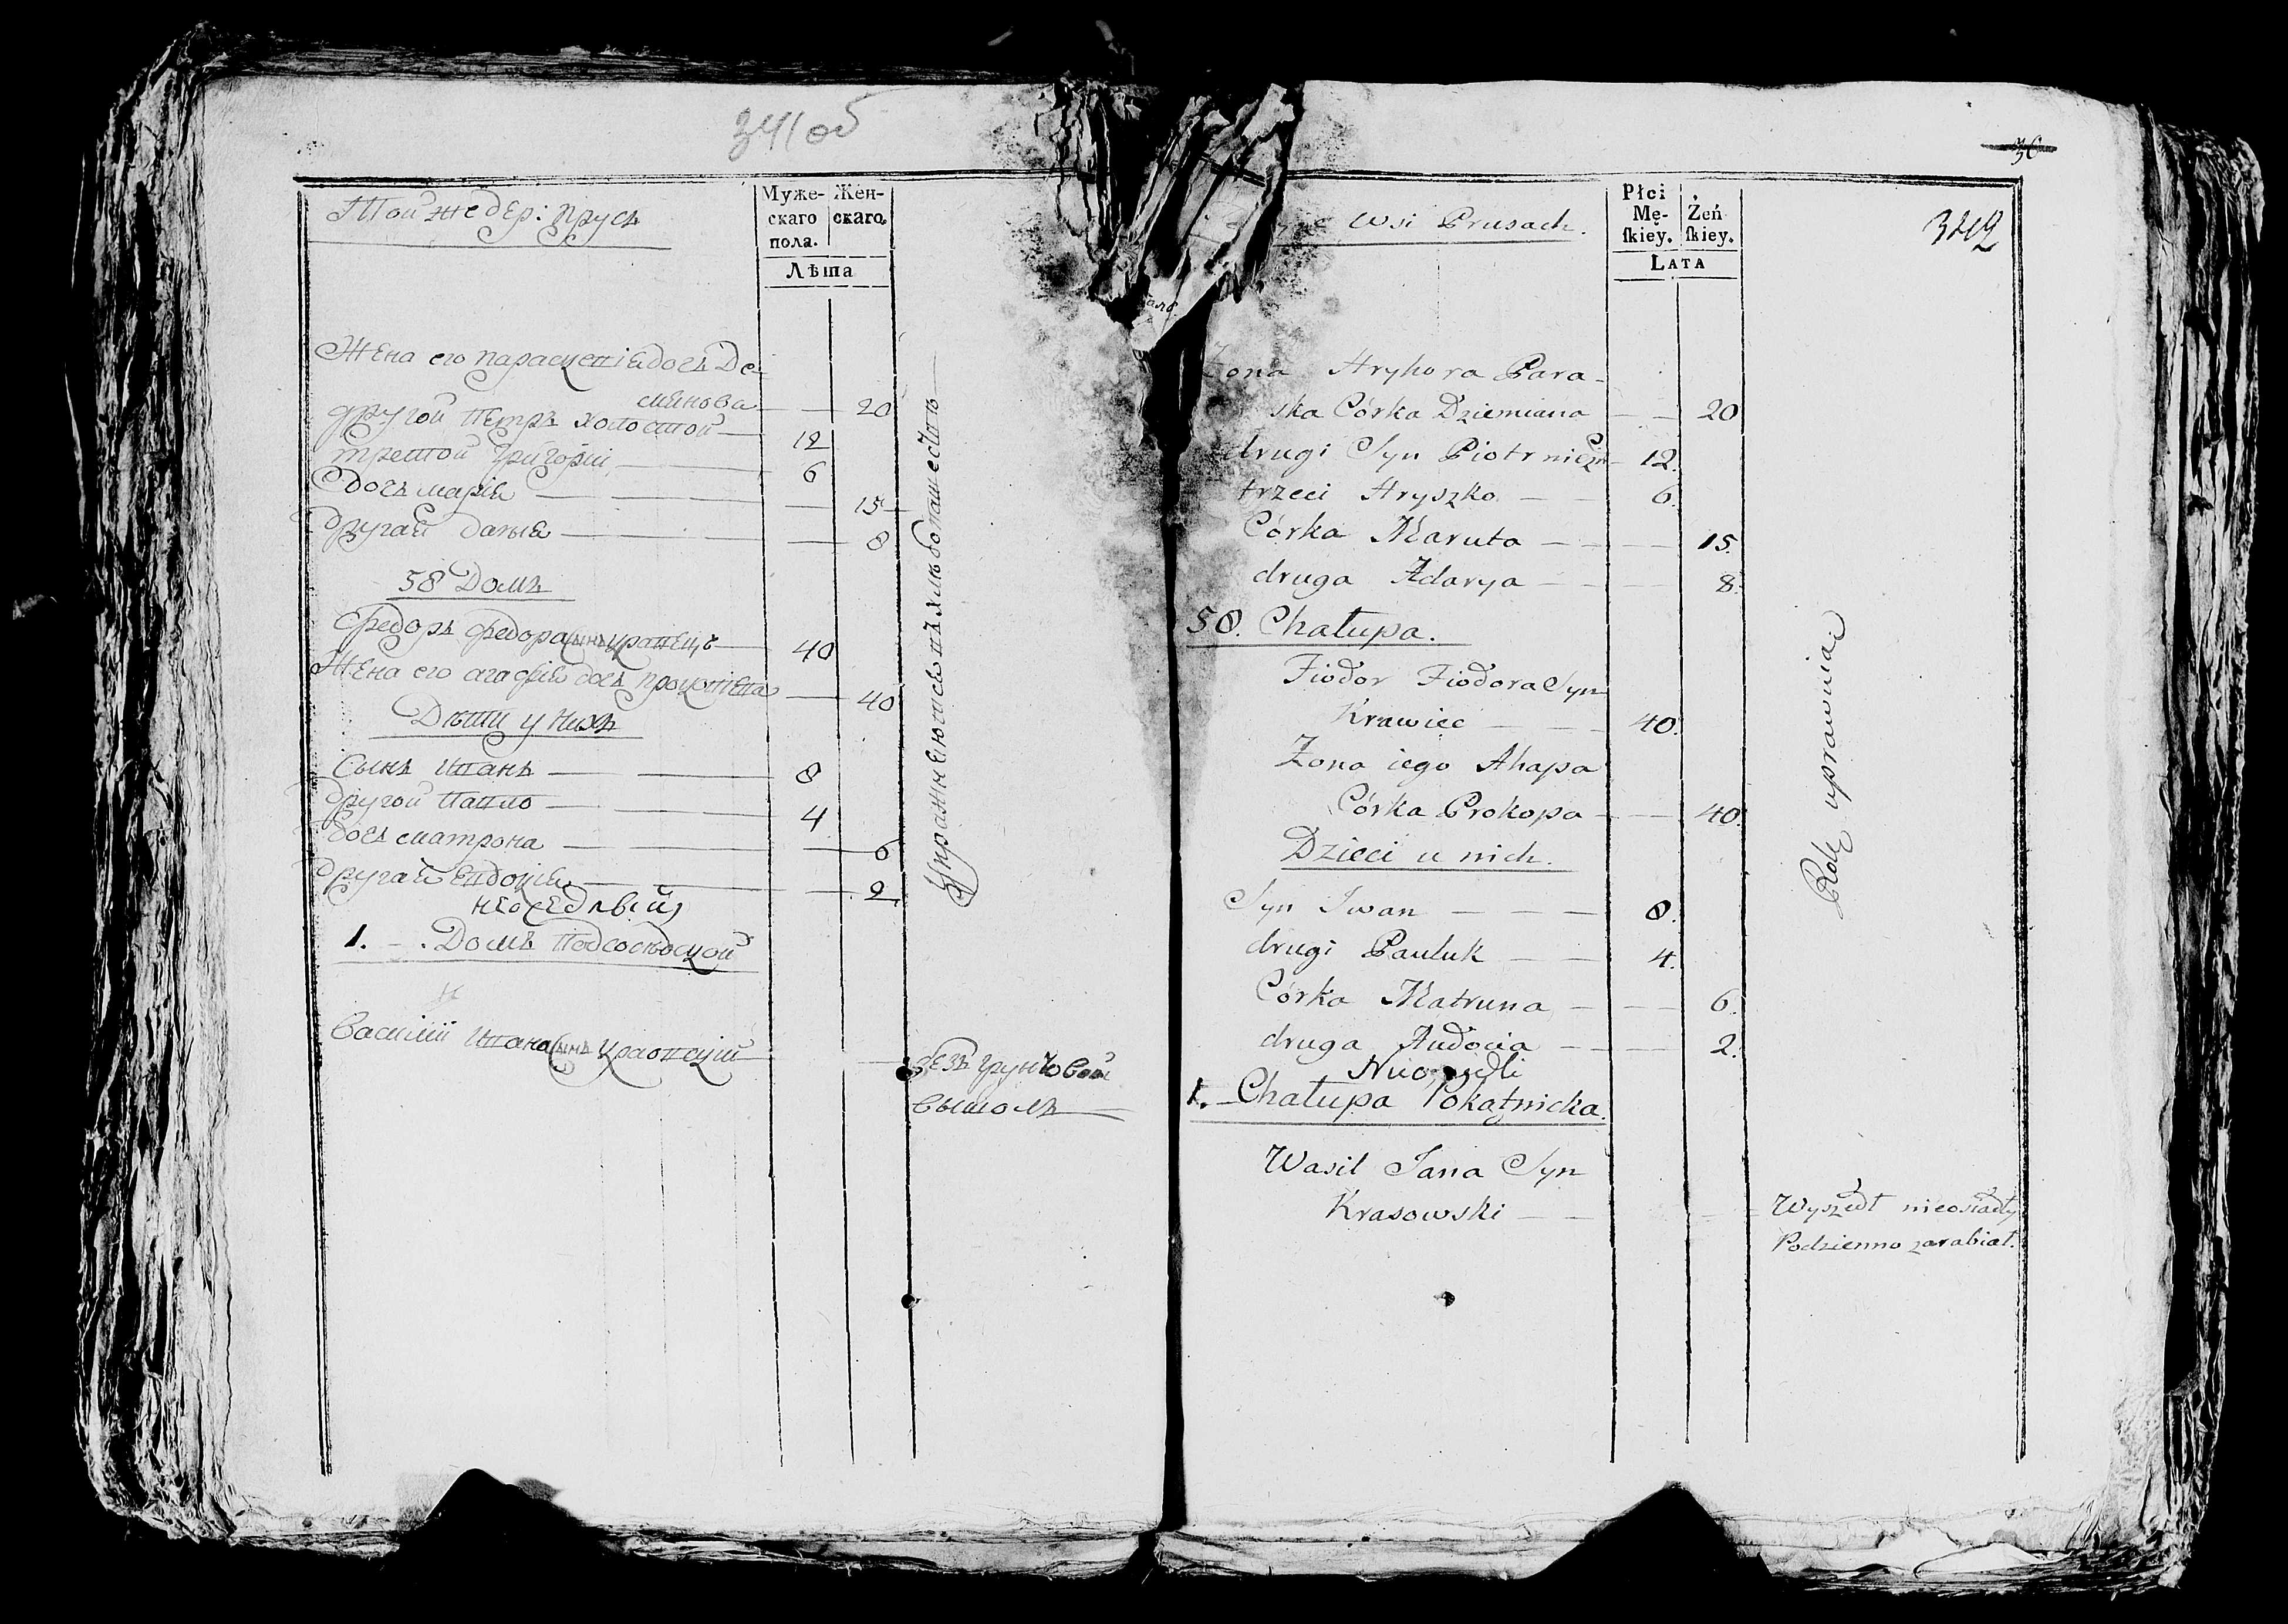 341об
Той же дер: Прусъ
Муже- Жен-
скаго скаго
пола.
Лѣта
Жена его Параскевія дочь Де-
мянова — — 20
другой Петръ холостой — 12
третой Григорій — 6
Дочь Марія — — 15
другая Дарья — — 8
58 Домъ
Федоръ Федора сынъ Кравецъ — 40
Жена его Агафія дочь Прокопева — 40
Дѣти у нихъ
Сынъ Иванъ — — 8
другой Павло — — 4
дочь Матрона — — 6
другая Евдокія — — 2
неоседлый
1. — Домъ Подсосѣдской
Василій Ивана сынъ Красовскій —
Упражнеются въ хлѣбопашествѣ
безъ грунтовой
вышолъ
36
342
Wsi Prusach.
Płci
Mę- Żeń
skiey. skiey.
LATA
Zona Hryhora Para-
ska Córka Dziemiana — 20
drugi Syn Piotr nieżn 12.
trzeci Hryszko — 6.
Córka Maruta — — 15.
druga Adarya — — 8.
58. Chałupa.
Fiodor Fiodora Syn
Krawiec — — 40.
Zona iego Ahapa
Córka Prokopa — — 40.
Dzieci u nich.
Syn Iwan — — — 8.
drugi Pauluk — — 4.
Córka Matruna — — 6.
druga Audocia — — 2.
Nieosiedli
1. — Chałupa Pokątnicka.
Wasil Jana Syn
Krasowski — —
Rolę uprawnia
Wyszedł nieosiadły
Podzienno zarabiał.